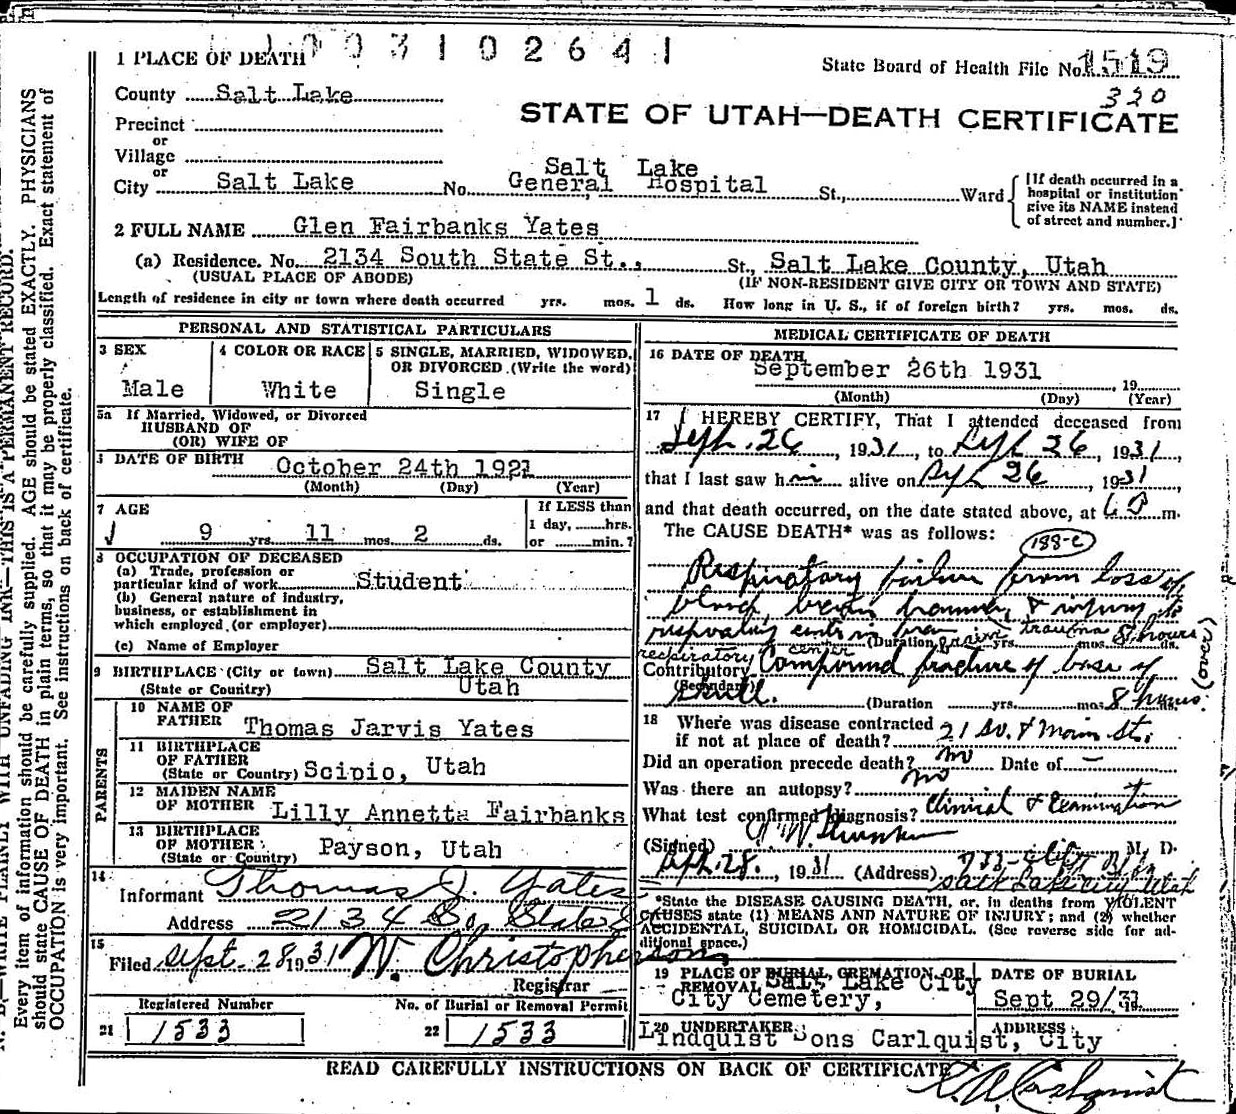 1003102641
1 PLACE OF DEATH
State Board of Health File No. 1519
320
County Salt Lake
STATE OF UTAH—DEATH CERTIFICATE
Precinct
or
Village
or
City Salt Lake No. Salt Lake General Hospital St., Ward
[If death occurred in a hospital or institution give its NAME instead of street and number.]
2 FULL NAME Glen Fairbanks Yates
(a) Residence. No. 2134 South State St., St., Salt Lake County, Utah
(USUAL PLACE OF ABODE) (IF NON-RESIDENT GIVE CITY OR TOWN AND STATE)
Length of residence in city or town where death occurred yrs. mos. 1 ds. How long in U. S., if of foreign birth? yrs. mos. ds.
PERSONAL AND STATISTICAL PARTICULARS
3 SEX
Male
4 COLOR OR RACE
White
5 SINGLE, MARRIED, WIDOWED, OR DIVORCED (Write the word)
Single
5a If Married, Widowed, or Divorced
HUSBAND OF
(OR) WIFE OF
DATE OF BIRTH October 24th 1921
(Month) (Day) (Year)
7 AGE
9 yrs. 11 mos. 2 ds.
If LESS than
1 day, hrs.
or min.?
8 OCCUPATION OF DECEASED
(a) Trade, profession or
particular kind of work Student
(b) General nature of industry,
business, or establishment in
which employed (or employer)
(c) Name of Employer
9 BIRTHPLACE (City or town) Salt Lake County
(State or Country) Utah
PARENTS
10 NAME OF
FATHER Thomas Jarvis Yates
11 BIRTHPLACE
OF FATHER
(State or Country) Scipio, Utah
12 MAIDEN NAME
OF MOTHER Lilly Annetta Fairbanks
13 BIRTHPLACE
OF MOTHER
(State or Country) Payson, Utah
14
Informant Thomas J. Yates
Address 2134 So. State S
15
Filed Sept. 28 1931 W. Christopherson
Registrar
Registered Number
21 1533
No. of Burial or Removal Permit
22 1533
MEDICAL CERTIFICATE OF DEATH
16 DATE OF DEATH
September 26th 1931 , 19
(Month) (Day) (Year)
17 I HEREBY CERTIFY, That I attended deceased from
Sept. 26, 1931, to Sept 26, 1931,
that I last saw him alive on Sept 26, 1931,
and that death occurred, on the date stated above, at 6 P m.
The CAUSE DEATH* was as follows:
188-c
Respiratory failure from loss of
blood, brain trauma, & injury to
respiratory center in brain (Duration yrs. 8 hours ds.
respiratory center brain trauma
Contributory Compound fracture of base of
(Secondary) skull. (Duration yrs. mos. 8 hours.
(over)
18 Where was disease contracted
if not at place of death? 21 So. & Main St.
Did an operation precede death? no Date of –
Was there an autopsy? no
What test confirmed diagnosis? Clinical & Examination
(Signed) M. D.
28, 1931 (Address)
Salt Lake City Utah
*State the DISEASE CAUSING DEATH, or, in deaths from VIOLENT
CAUSES state (1) MEANS AND NATURE OF INJURY; and (2) whether
ACCIDENTAL, SUICIDAL OR HOMICIDAL. (See reverse side for ad-
ditional space.)
19 PLACE OF BURIAL, CREMATION OR
REMOVAL Salt Lake City
City Cemetery,
DATE OF BURIAL
Sept 29/31
20 UNDERTAKER ADDRESS
Lindquist Sons Carlquist, City
READ CAREFULLY INSTRUCTIONS ON BACK OF CERTIFICATE
N. B.—WRITE PLAINLY WITH UNFADING INK—THIS IS A PERMANENT RECORD.
Every item of information should be carefully supplied. AGE should be stated EXACTLY. PHYSICIANS
should state CAUSE OF DEATH in plain terms, so that it may be properly classified. Exact statement of
OCCUPATION is very important. See instructions on back of certificate.